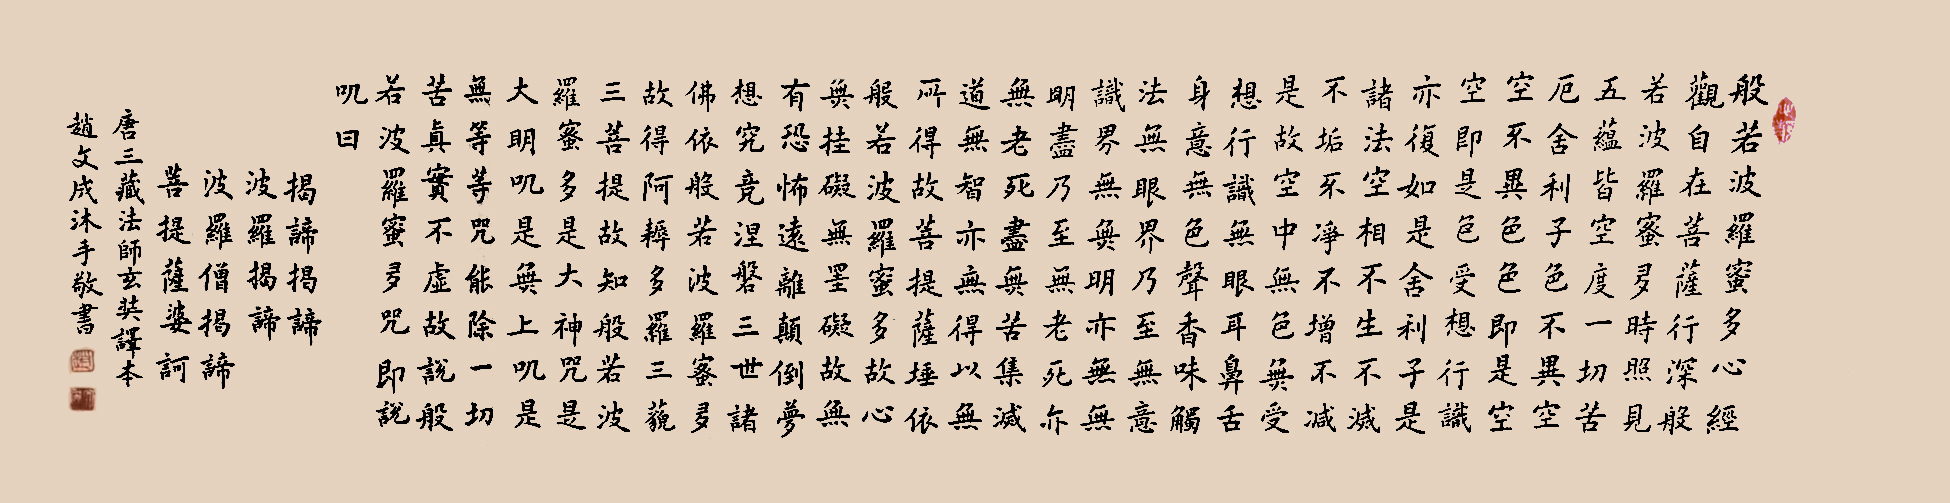 般若波羅蜜多心經
觀自在菩薩行深般
若波羅蜜多時照見
五蘊皆空度一切苦
厄舍利子色不異空
空不異色色即是空
空即是色受想行識
亦復如是舍利子是
諸法空相不生不滅
不垢不淨不增不減
是故空中無色無受
想行識無眼耳鼻舌
身意無色聲香味觸
法無眼界乃至無意
識界無無明亦無無
明盡乃至無老死亦
無老死盡無苦集滅
道無智亦無得以無
所得故菩提薩埵依
般若波羅蜜多故心
無挂礙無罣礙故無
有恐怖遠離顛倒夢
想究竟涅磐三世諸
佛依般若波羅蜜多
故得阿耨多羅三藐
三菩提故知般若波
羅蜜多是大神咒是
大明呪是無上呪是
無等等咒能除一切
苦真實不虛故說般
若波羅蜜多咒即說
呪曰
揭諦揭諦
波羅揭諦
波羅僧揭諦
菩提薩婆訶
唐三藏法師玄奘譯本
趙文成沐手敬書